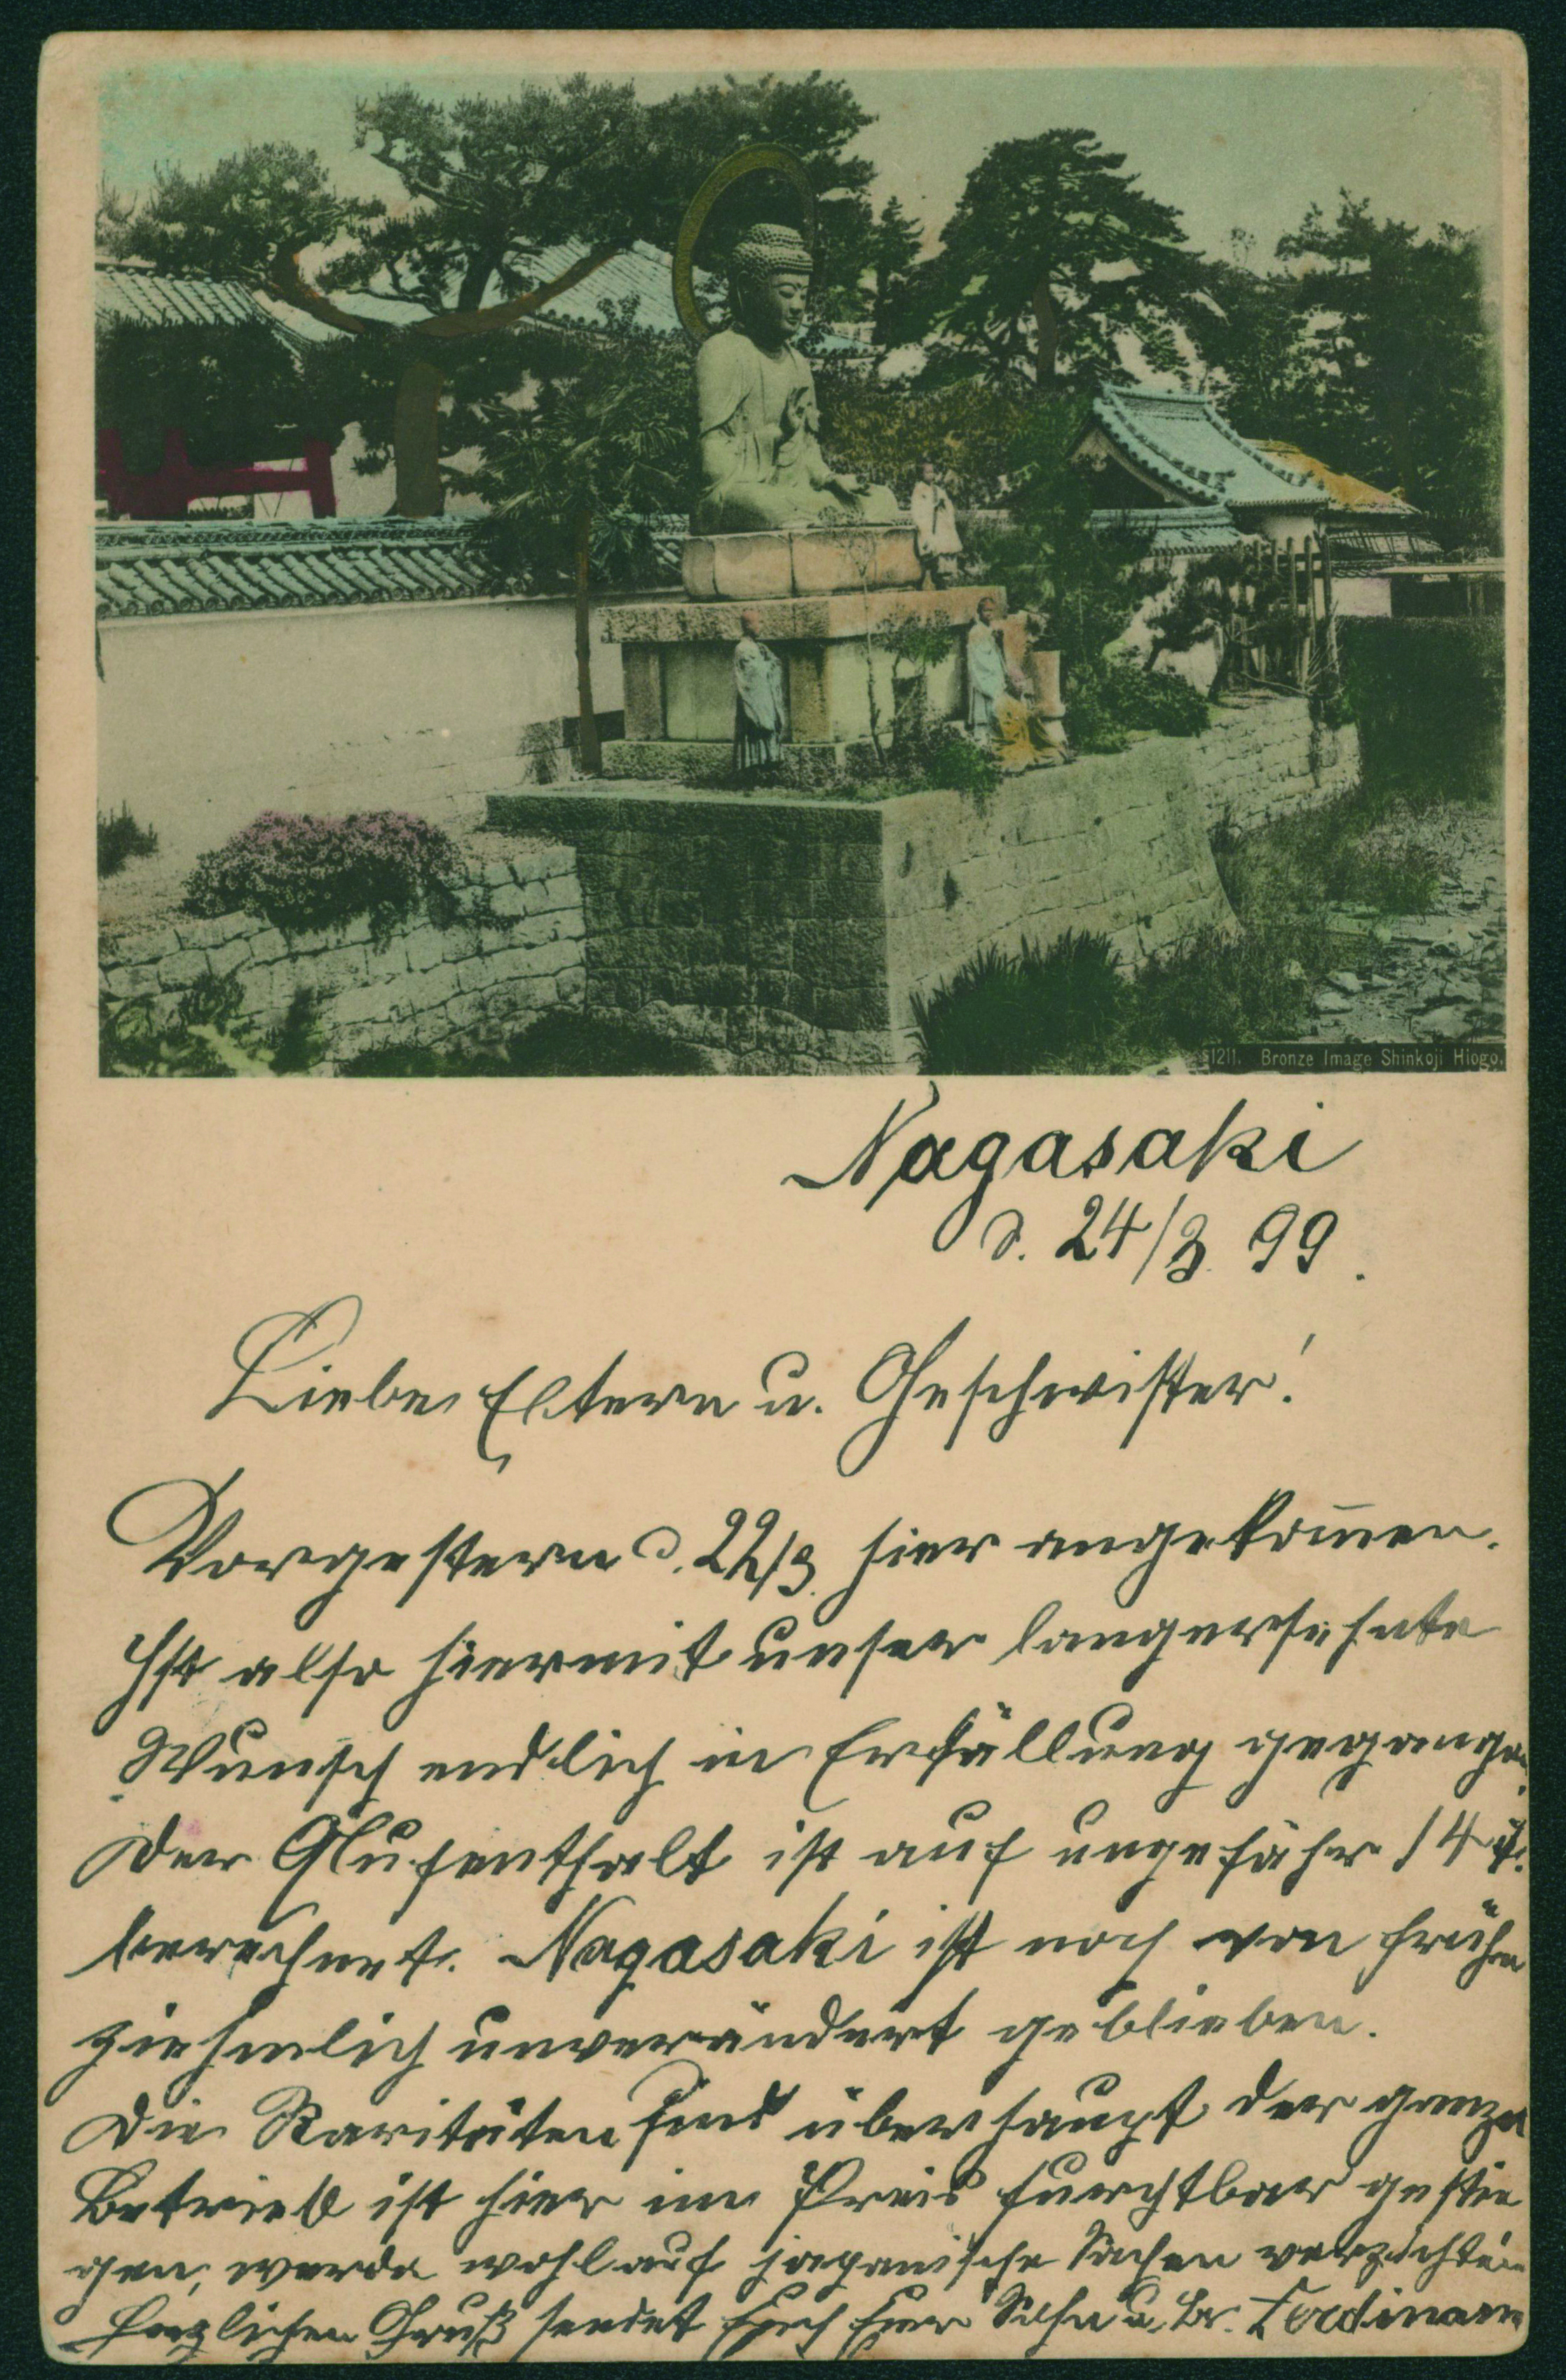 1211. Bronze Image Shinkoji Hiogo.
Nagasaki
d. 24/3. 99.
Liebe Eltern u. Geschwister!
Vorgestern d. 22/3. hier angekom̄en.
Ist also hiermit unser langersehnte
Wunsch endlich in Erfüllung gegangen.
Der Aufenthalt ist auf ungefähr 14 T.
berechnet. Nagasaki ist noch von früher
ziehmlich unverändert geblieben.
Die Raritäten sind überhaupt der ganze
Betrieb ist hier im Preis furchtbar gestie
gen, werde wohl auf japanische Sachen verzichten
Herzlichen Gruß sendet Euch Euer Sohn u. Br. Ferdinand